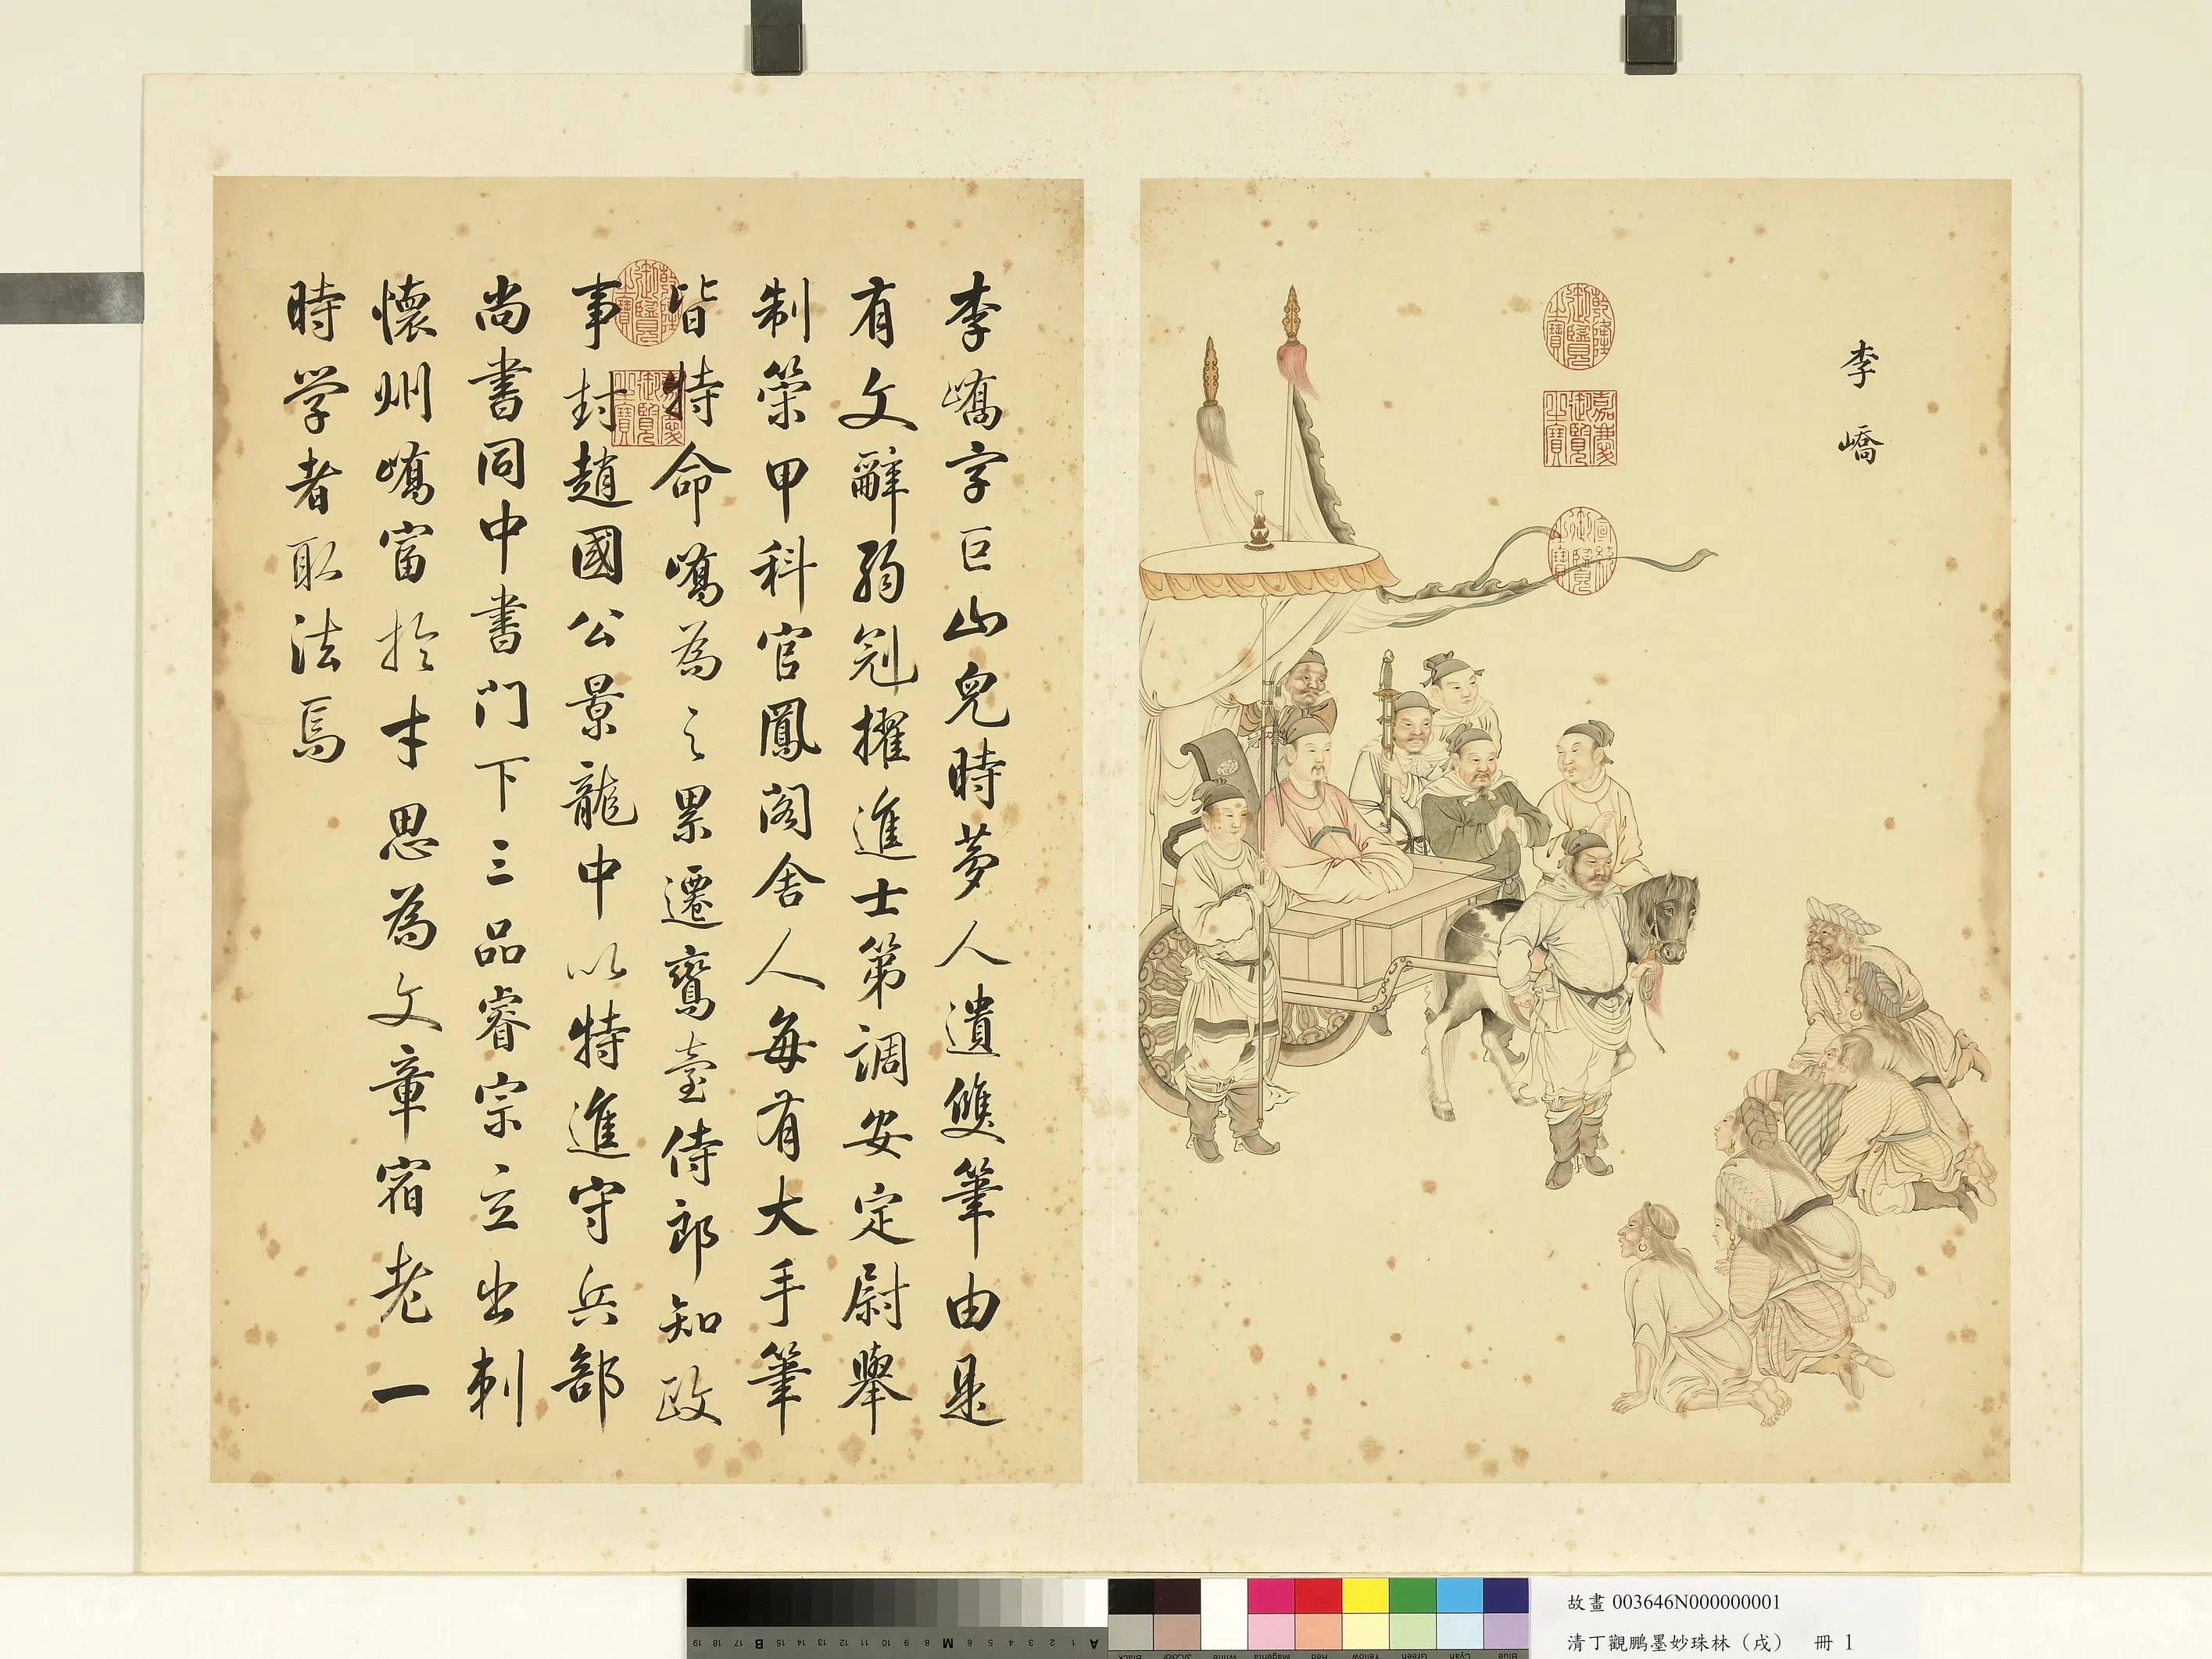 李嶠
乾隆御覽之寶
嘉慶御覽之寶
宣統御覽之寶
李嶠字巨山兒時夢人遺雙筆由是
有文辭弱冠擢進士第調安定尉舉
制策甲科官鳳閣舍人每有大手筆
皆特命嶠為之累遷鸞臺侍郎知政
事封趙國公景龍中以特進守兵部
尚書同中書門下三品睿宗立出刺
懷州嶠富於才思為文章宿老一
時学者取法焉
故畫 003646N000000001
清丁觀鵬墨妙珠林（戌） 冊 1